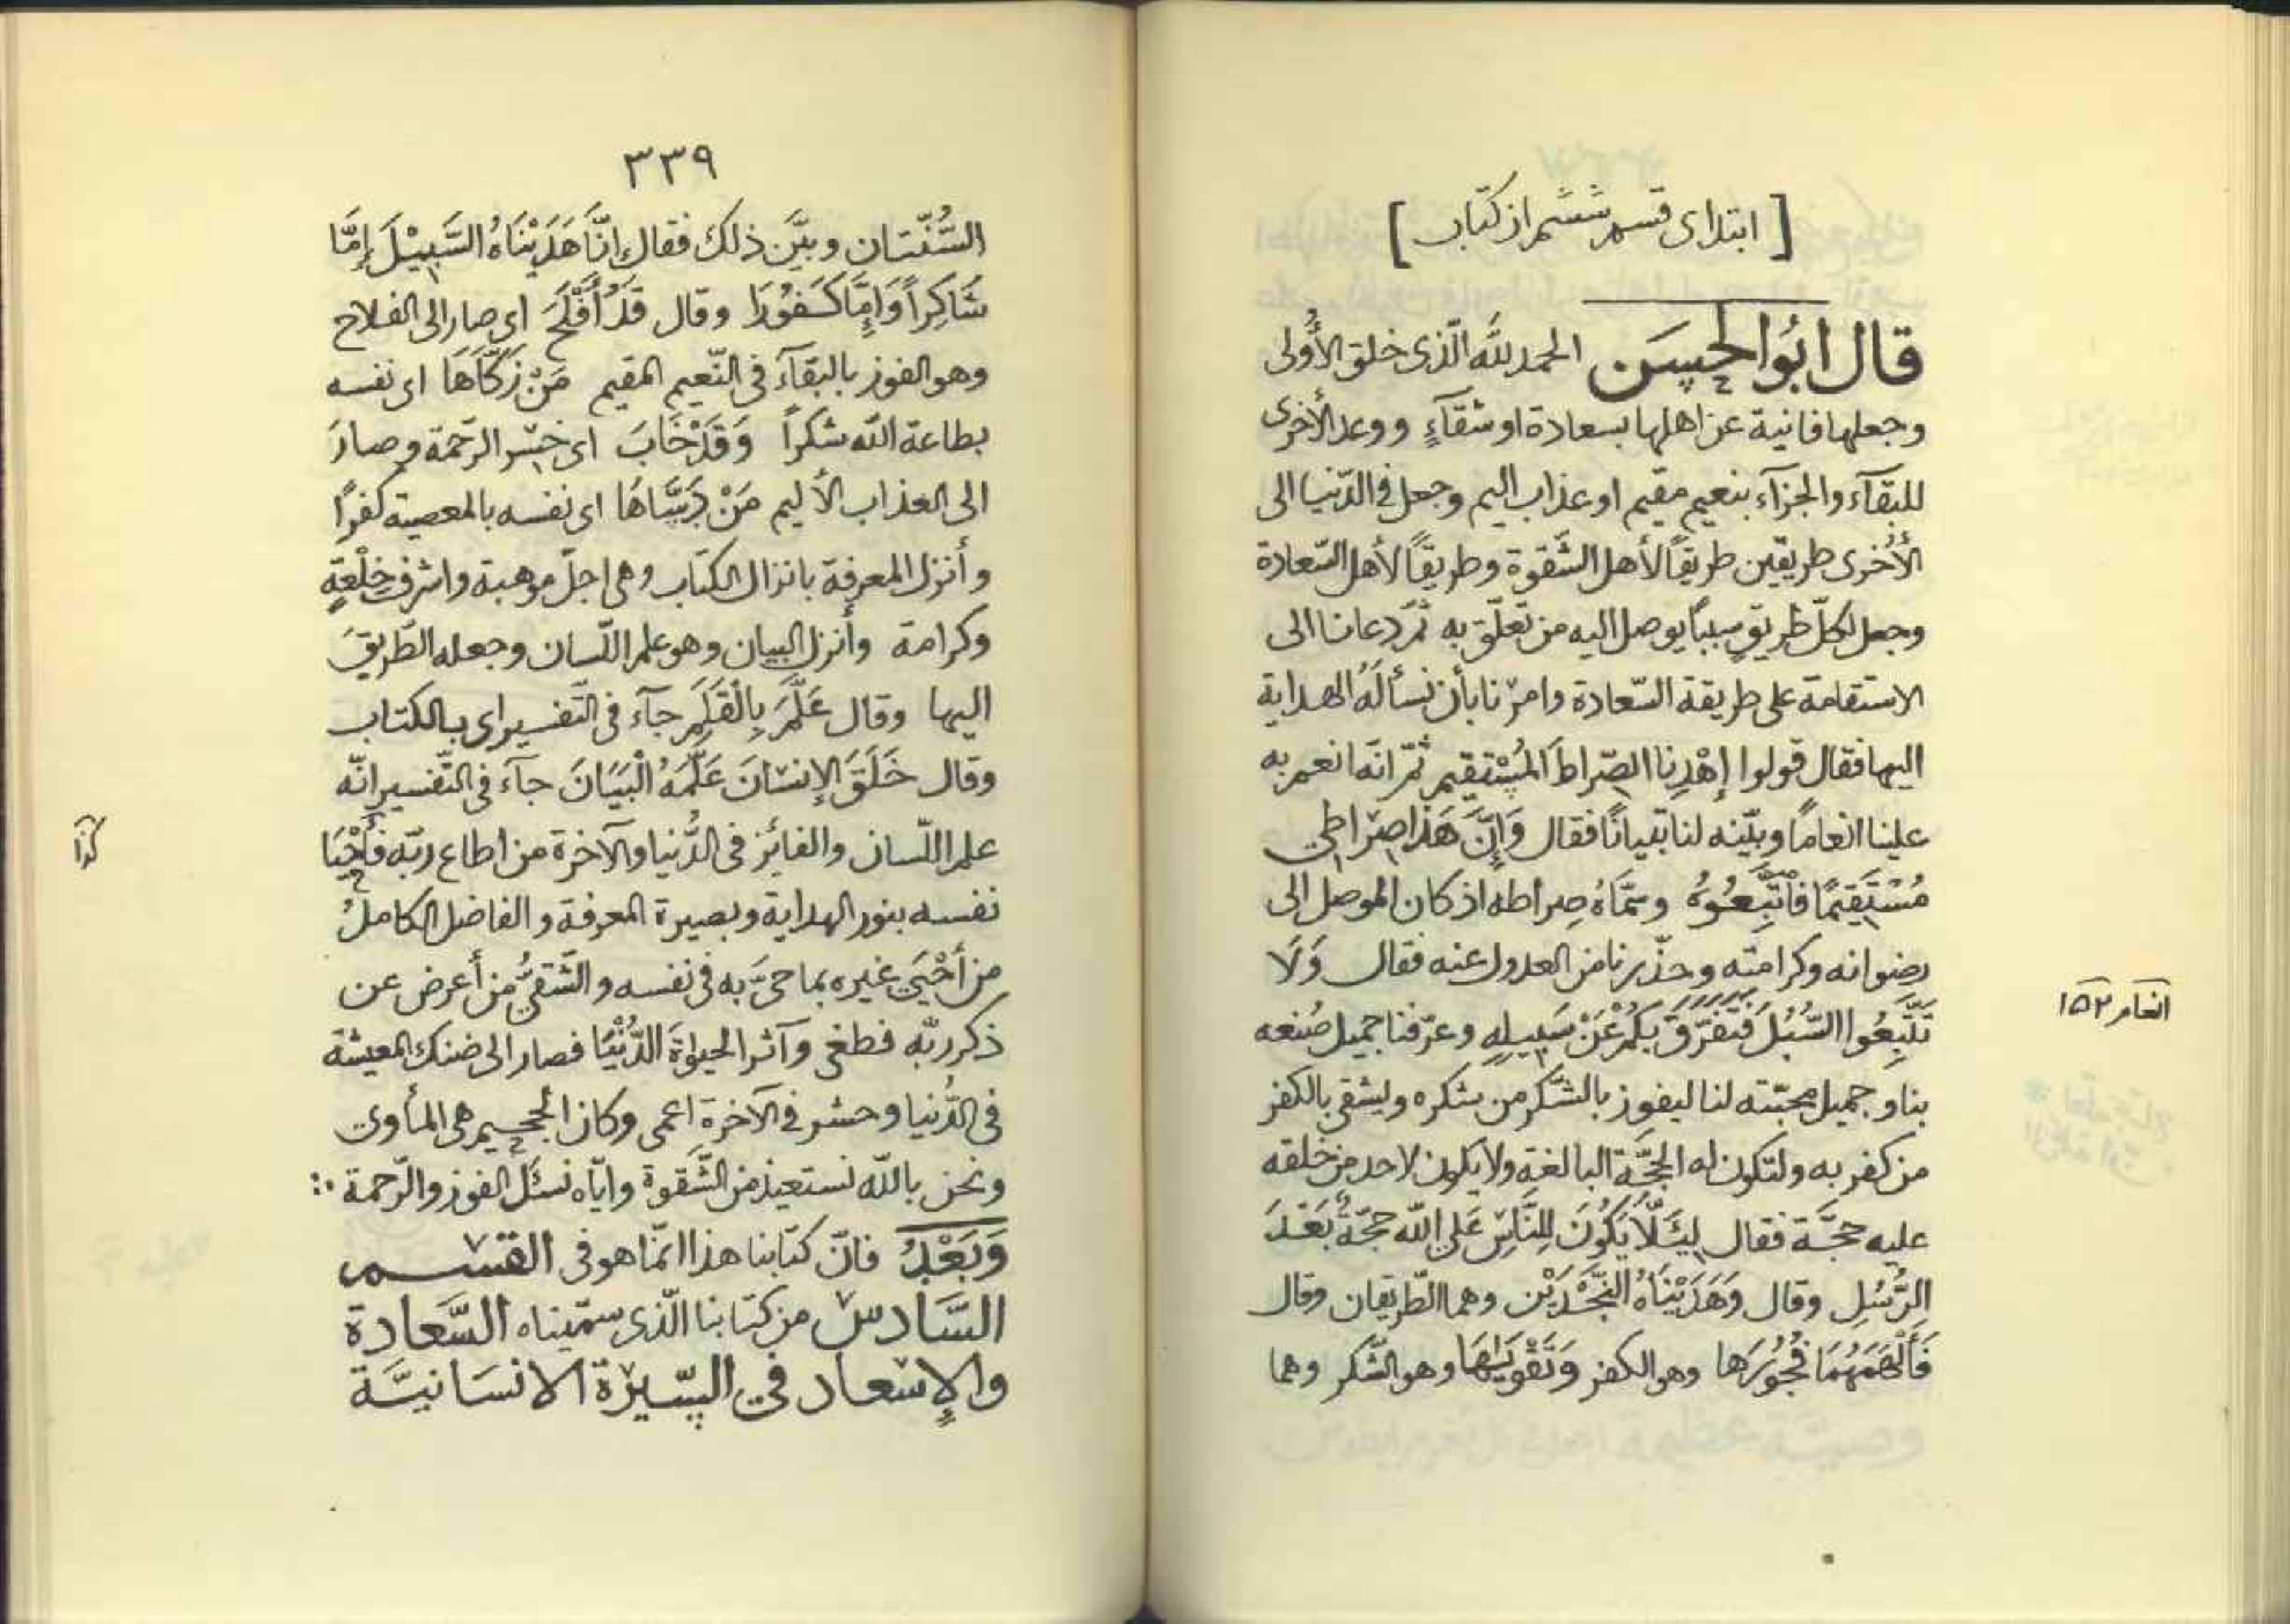 [ ابتدای قسم ششم از کتاب ]
قال ابُوالحسَن الحمد للّه الّذی خلق الأُولی
وجعلها فانیة عن اهلها بسعادة او شقآءٍ ووعد الأخری
للبقآء والجزآء بنعیم مقیم او عذاب الیم وجعل فی الدّنیا الی
الأُخری طریقین طریقاً لأهل الشَّقوة وطریقاً لأهل السّعادة
وجعل لکلّ طریقٍ سبباً یوصل الیه من تعلّق به ثمّ دعانا الی
الاستقامة علی طریقة السّعادة وامرنا بأن نسأله الهدایة
الیها فقال قولوا إهْدِنا الصّراطَ المُسْتقیم ثمّ انّه انعم به
علینا انعاماً وبیّنه لنا تبیاناً فقال وَإِنَّ هَذا صِراطی
مُسْتَقِیمًا فاتَّبِعُوهُ وسمّاهُ صِراطه اذ کان الموصل الی
رضوانه وکرامته وحذّرنا من العدول عنه فقال وَلَا
تَتَّبِعُوا السُّبُلَ فَتَفَرَّقَ بِکُمْ عَنْ سَبِیلِهِ وعرّفنا جمیل صُنعه
انعام ۱۵۲
بنا وجمیل محبّته لنا لیفوز بالشّکر من شکره ویشقی بالکفر
من کفر به ولتکون له الحجّة البالغة ولا یکون لاحد من خلقه
علیه حجّة فقال لِئَلّاٰ یَکُونَ لِلنَّاسِ عَلَی اللّٰه حجّةٌ بَعْدَ
الرُّسُلِ وقال وَهَدَیْنَاهُ النَّجْدَیْن وهما الطّریقان وقال
فَأَلْهَمَهَا فُجُورَها وهو الکفر وَتَقْوَیٰهَا وهو الشّکر وهما
۳۳۹
السُّنّتان وبیَّن ذلك فقال إنَّا هَدَیْنَاهُ السَّبِیْلَ إمَّا
شَاکِراً وَإِمَّا کَفُورَا وقال قَدْ أَفْلَحَ ای صار الی الفلاح
وهو الفوز بالبقآء فی النّعیم المقیم مَنْ زَکّٰاهَا ای نفسه
بطاعة اللّه شکراً وَقَدْ خَابَ ای خسر الرّحمة وصارَ
الی العذاب الألیم مَنْ دَسَّاهَا ای نفسه بالمعصیة کفرًا
وأنزل المعرفة بانزال الکتاب وهی اجلّ موهبة واشرف خِلْعةٍ
وکرامة وأنزل البیان وهو علم اللّسان وجعله الطّریقَ
الیها وقال عَلَّمَ بِالْقَلَمِ جآء فی التّفسیر ای بالکتاب
وقال خَلَقَ الإنسَانَ عَلَّمَهُ الْبَیَانَ جآءَ فی التّفسیر انّه
علم اللّسان والفائز فی الدُّنیا والآخرة من اطاع ربّه فأحْیَا
کذا
نفسه بنور الهدایة وبصیرة المعرفة والفاضل الکاملُ
من أَحْیَی غیره بما حیَّ به فی نفسه والشّقیُّ من أعرض عن
ذکر ربّه فطغی وآثر الحیوٰةَ الدُّنْیَا فصار الی ضنك المعیشة
فی الدُّنیا وحشر فی الآخرة اعمی وکان الجحیم هی المأوی
ونحن باللّه نستعیذ من الشّقوة وایّاه نسئَل الفوز والرّحمة
وَبَعْدُ فانّ کتابنا هذا انّما هو فی القسم
السَّادس من کتابنا الّذی سمّیناه السَّعادة
والإسْعاد فی السّیرة الانسَانیّة